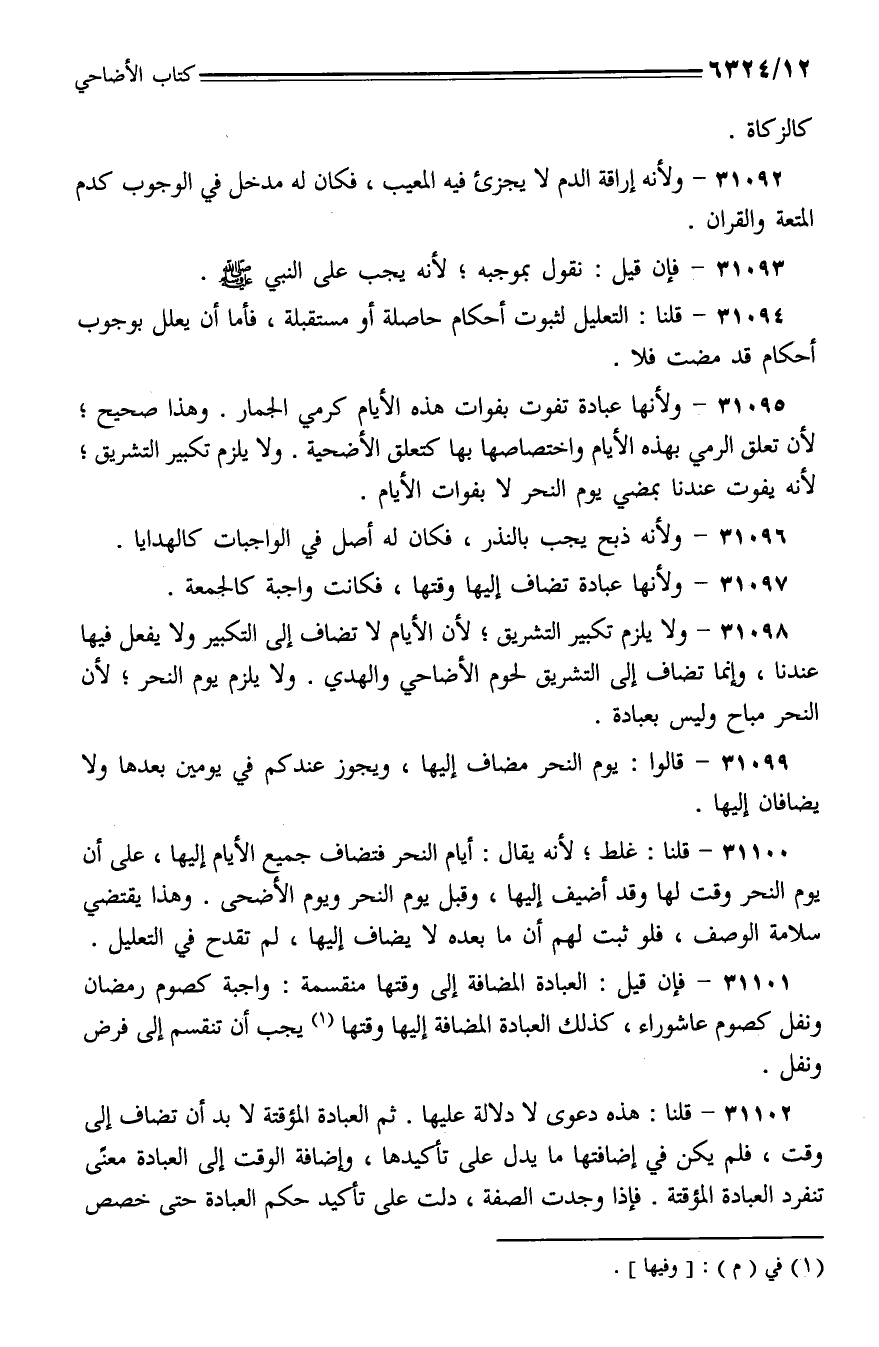 ٦٣٢٤/١٢ كتاب الأضاحي
كالزكاة .
٣١٠٩٢ – ولأنه إراقة الدم لا يجزئ فيه المعيب ، فكان له مدخل في الوجوب كدم
المتعة والقران .
٣١٠٩٣ – فإن قيل : نقول بموجبه ؛ لأنه يجب على النبي ﷺ .
٣١٠٩٤ – قلنا : التعليل لثبوت أحكام حاصلة أو مستقبلة ، فأما أن يعلل بوجوب
أحكام قد مضت فلا .
٣١٠٩٥ – ولأنها عبادة تفوت بفوات هذه الأيام كرمي الجمار . وهذا صحيح ؛
لأن تعلق الرمي بهذه الأيام واختصاصها بها كتعلق الأضحية . ولا يلزم تكبير التشريق ؛
لأنه يفوت عندنا بمضي يوم النحر لا بفوات الأيام .
٣١٠٩٦ – ولأنه ذبح يجب بالنذر ، فكان له أصل في الواجبات كالهدايا .
٣١٠٩٧ – ولأنها عبادة تضاف إليها وقتها ، فكانت واجبة كالجمعة .
٣١٠٩٨ – ولا يلزم تكبير التشريق ؛ لأن الأيام لا تضاف إلى التكبير ولا يفعل فيها
عندنا ، وإنما تضاف إلى التشريق لحوم الأضاحي والهدي . ولا يلزم يوم النحر ؛ لأن
النحر مباح وليس بعبادة .
٣١٠٩٩ – قالوا : يوم النحر مضاف إليها ، ويجوز عندكم في يومين بعدها ولا
يضافان إليها .
٣١١٠٠ – قلنا : غلط ؛ لأنه يقال : أيام النحر فتضاف جميع الأيام إليها ، على أن
يوم النحر وقت لها وقد أضيف إليها ، وقبل يوم النحر ويوم الأضحى . وهذا يقتضي
سلامة الوصف ، فلو ثبت لهم أن ما بعده لا يضاف إليها ، لم تقدح في التعليل .
٣١١٠١ – فإن قيل : العبادة المضافة إلى وقتها منقسمة : واجبة كصوم رمضان
ونفل كصوم عاشوراء ، كذلك العبادة المضافة إليها وقتها (١) يجب أن تنقسم إلى فرض
ونفل .
٣١١٠٢ – قلنا : هذه دعوى لا دلالة عليها . ثم العبادة المؤقتة لا بد أن تضاف إلى
وقت ، فلم يكن في إضافتها ما يدل على تأكيدها ، وإضافة الوقت إلى العبادة معنًى
تنفرد العبادة المؤقتة . فإذا وجدت الصفة ، دلت على تأكيد حكم العبادة حتى خصص
(١) في ( م ) : [ وفيها ] .